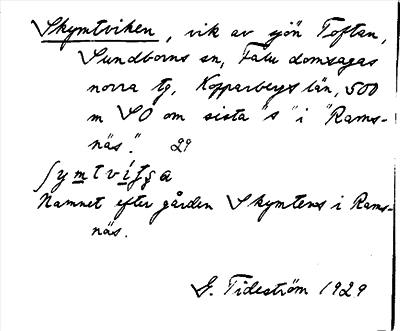 Skymtviken, vik av sjön Toftan,
Sundborns sn, Falu domsagas
norra tg, Kopparbergs län, 500
m SO om sista "s" i "Rams-
näs". 29
ʃymtvíʃʂa
Namnet efter gården Skymtens i Rams-
näs.
G. Tideström 1929